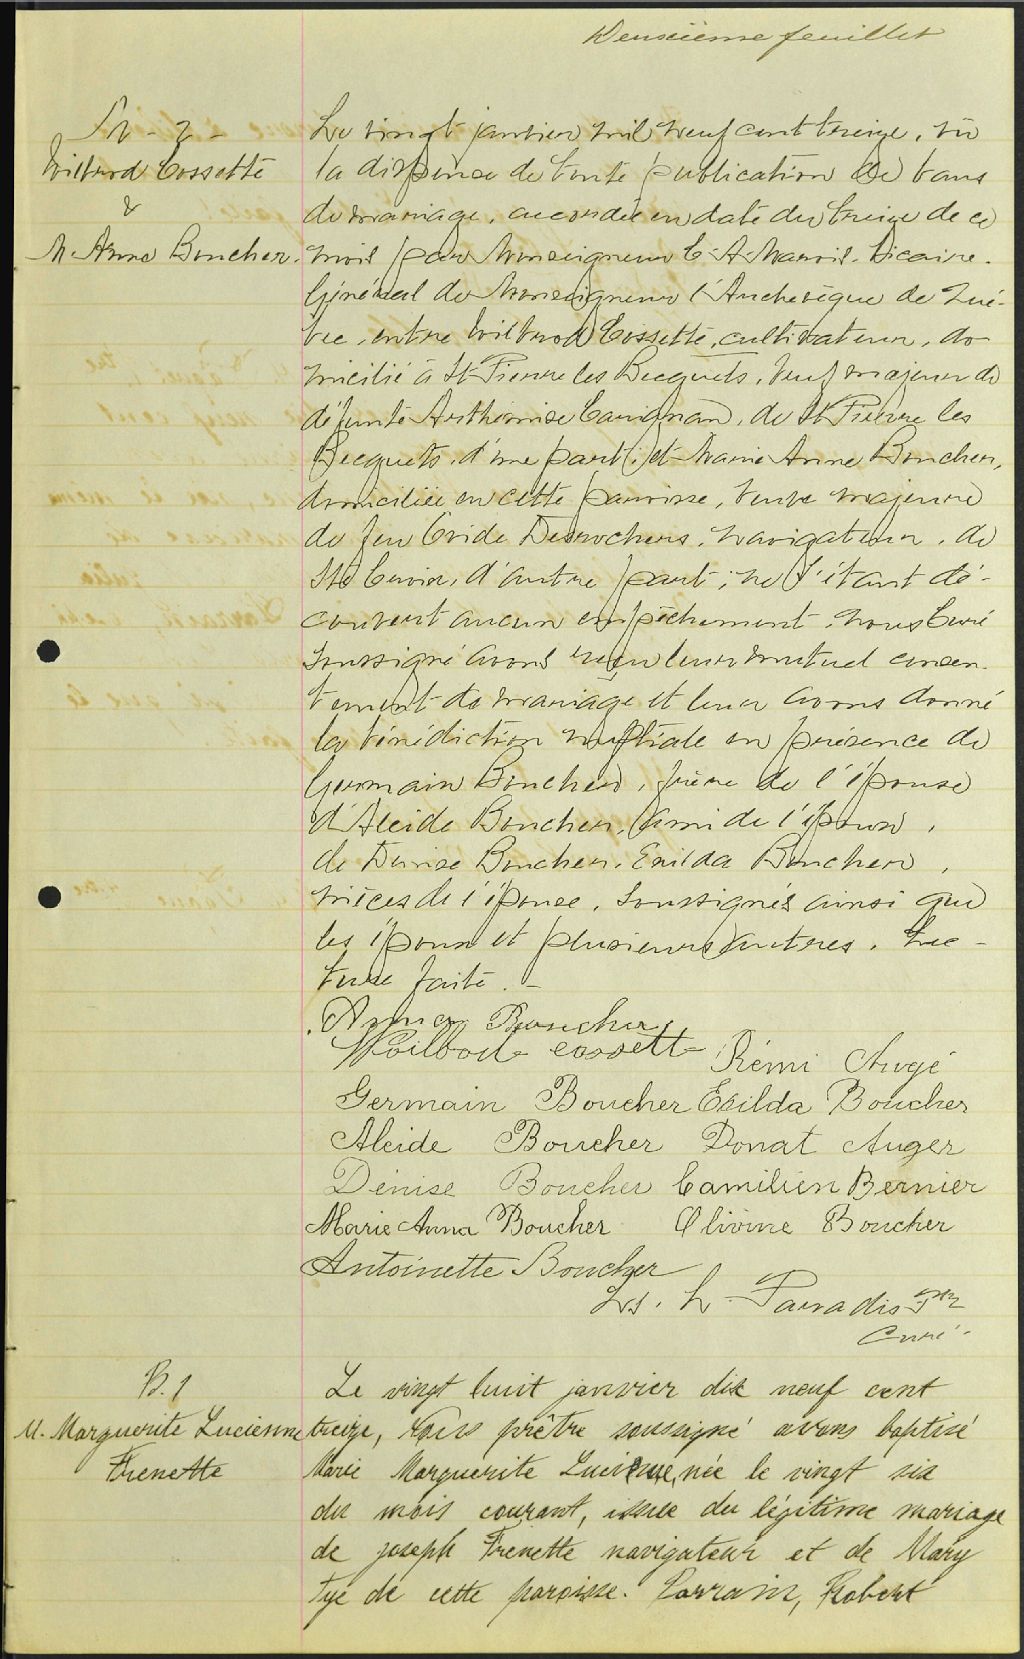 Deuxième feuillet
M - 2 -
Wilbrod Cossette
&
M. Anna Boucher.
Le vingt janvier mil neuf cent treize, vu
la dispense de toute publication de bans
de mariage, accordée en date du treize de ce
mois par Monseigneur C. A. Marois, Vicaire-
Général de Monseigneur l'Archevêque de Qué-
bec, entre Wilbrod Cossette, cultivateur, do-
micilié à St Pierre les Becquets, veuf majeur de
défunte Arthémise Carignan, de St Pierre les
Becquets, d'une part; et Marie Anne Boucher,
domiciliée en cette paroisse, veuve majeure
de feu Ovide Desrochers, navigateur, de
Ste Croix, d'autre part; ne s'étant dé-
couvert aucun empêchement, nous Curé
soussigné avons reçu leur mutuel consen-
tement de mariage et leur avons donné
la bénédiction nuptiale en présence de
Germain Boucher, frère de l'épouse
d'Alcide Boucher, ami de l'époux,
de Denise Boucher, Exilda Boucher,
nièces de l'épouse, soussignés ainsi que
les époux et plusieurs autres. Lec-
ture faite. -
Anna Boucher
Wilbod cossett Rémi Augé
Germain Boucher Exilda Boucher
Alcide Boucher Donat Auger
Denise Boucher Camilien Bernier
Marie Anna Boucher Olivine Boucher
Antoinette Boucher
Ls. L. Paradis Ptre
Curé.
B. 1
M. Marguerite Lucienne
Frenette
Le vingt huit janvier dix neuf cent
treize, Nous prêtre soussigné avons baptisé
Marie Marguerite Lucienne, née le vingt six
du mois courant, issue du légitime mariage
de joseph Frenette navigateur et de Mary
Tye de cette paroisse. Parrain, Robert